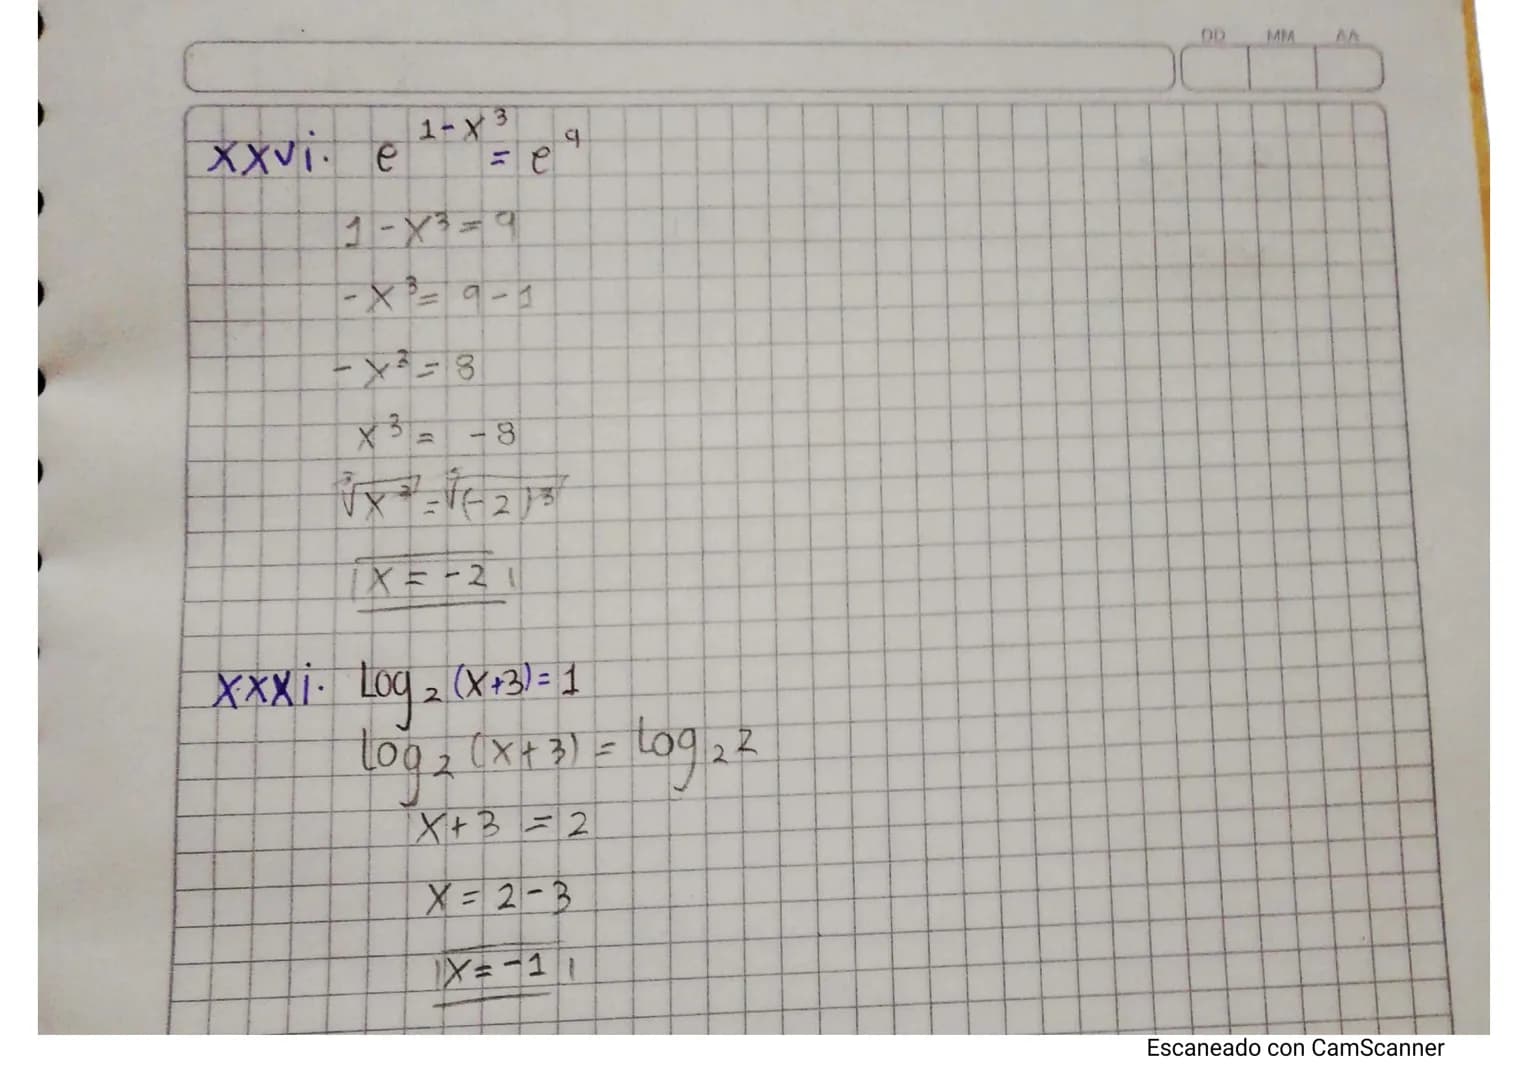 DD MM AA
xxvi. e^(1-x^3) = e^9
1-x^3=9
-x^3= 9-1
-x^3=8
x^3= -8
∛x^3=∛(-2)^3
x=-2
xxxi. Log_2(x+3)=1
log_2(x+3)=log_2 2
x+3=2
x=2-3
x=-1
Escaneado con CamScanner